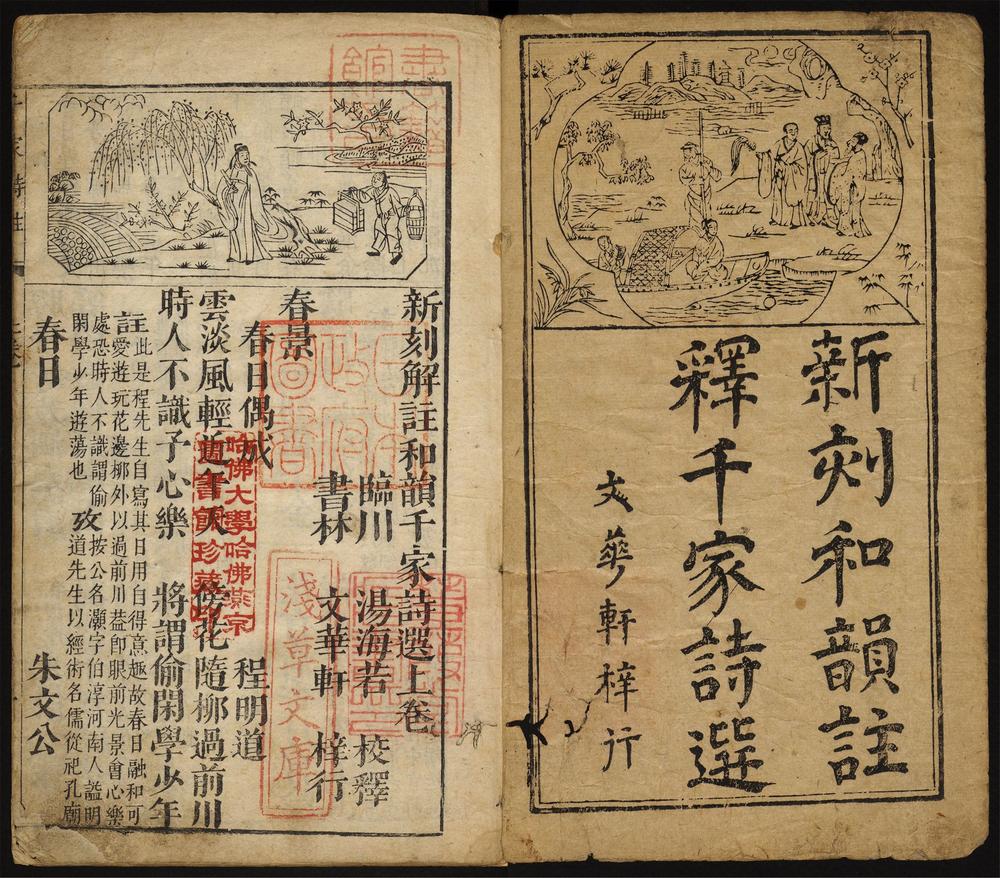 新刻和韻註
釋千家詩選
文華軒梓行
新刻解註和韻千家詩選上卷
臨川 湯海若 校釋
書林 文華軒 梓行
春景
春日偶成 程明道
雲淡風輕近午天 傍花隨柳過前川
時人不識予心樂 將謂偷閑學少年
註此是程先生自寫其日用自得意趣故春日融和可
愛遊玩花邊柳外以過前川葢卽眼前光景會心樂
處恐時人不識謂偷
閑學少年遊蕩也
攷
按公名灝字伯淳河南人謚明
道先生以經術名儒從祀孔廟
春日 朱文公
日本
政府
圖書
淺草文庫
哈佛大學哈佛燕京
圖書館珍藏印